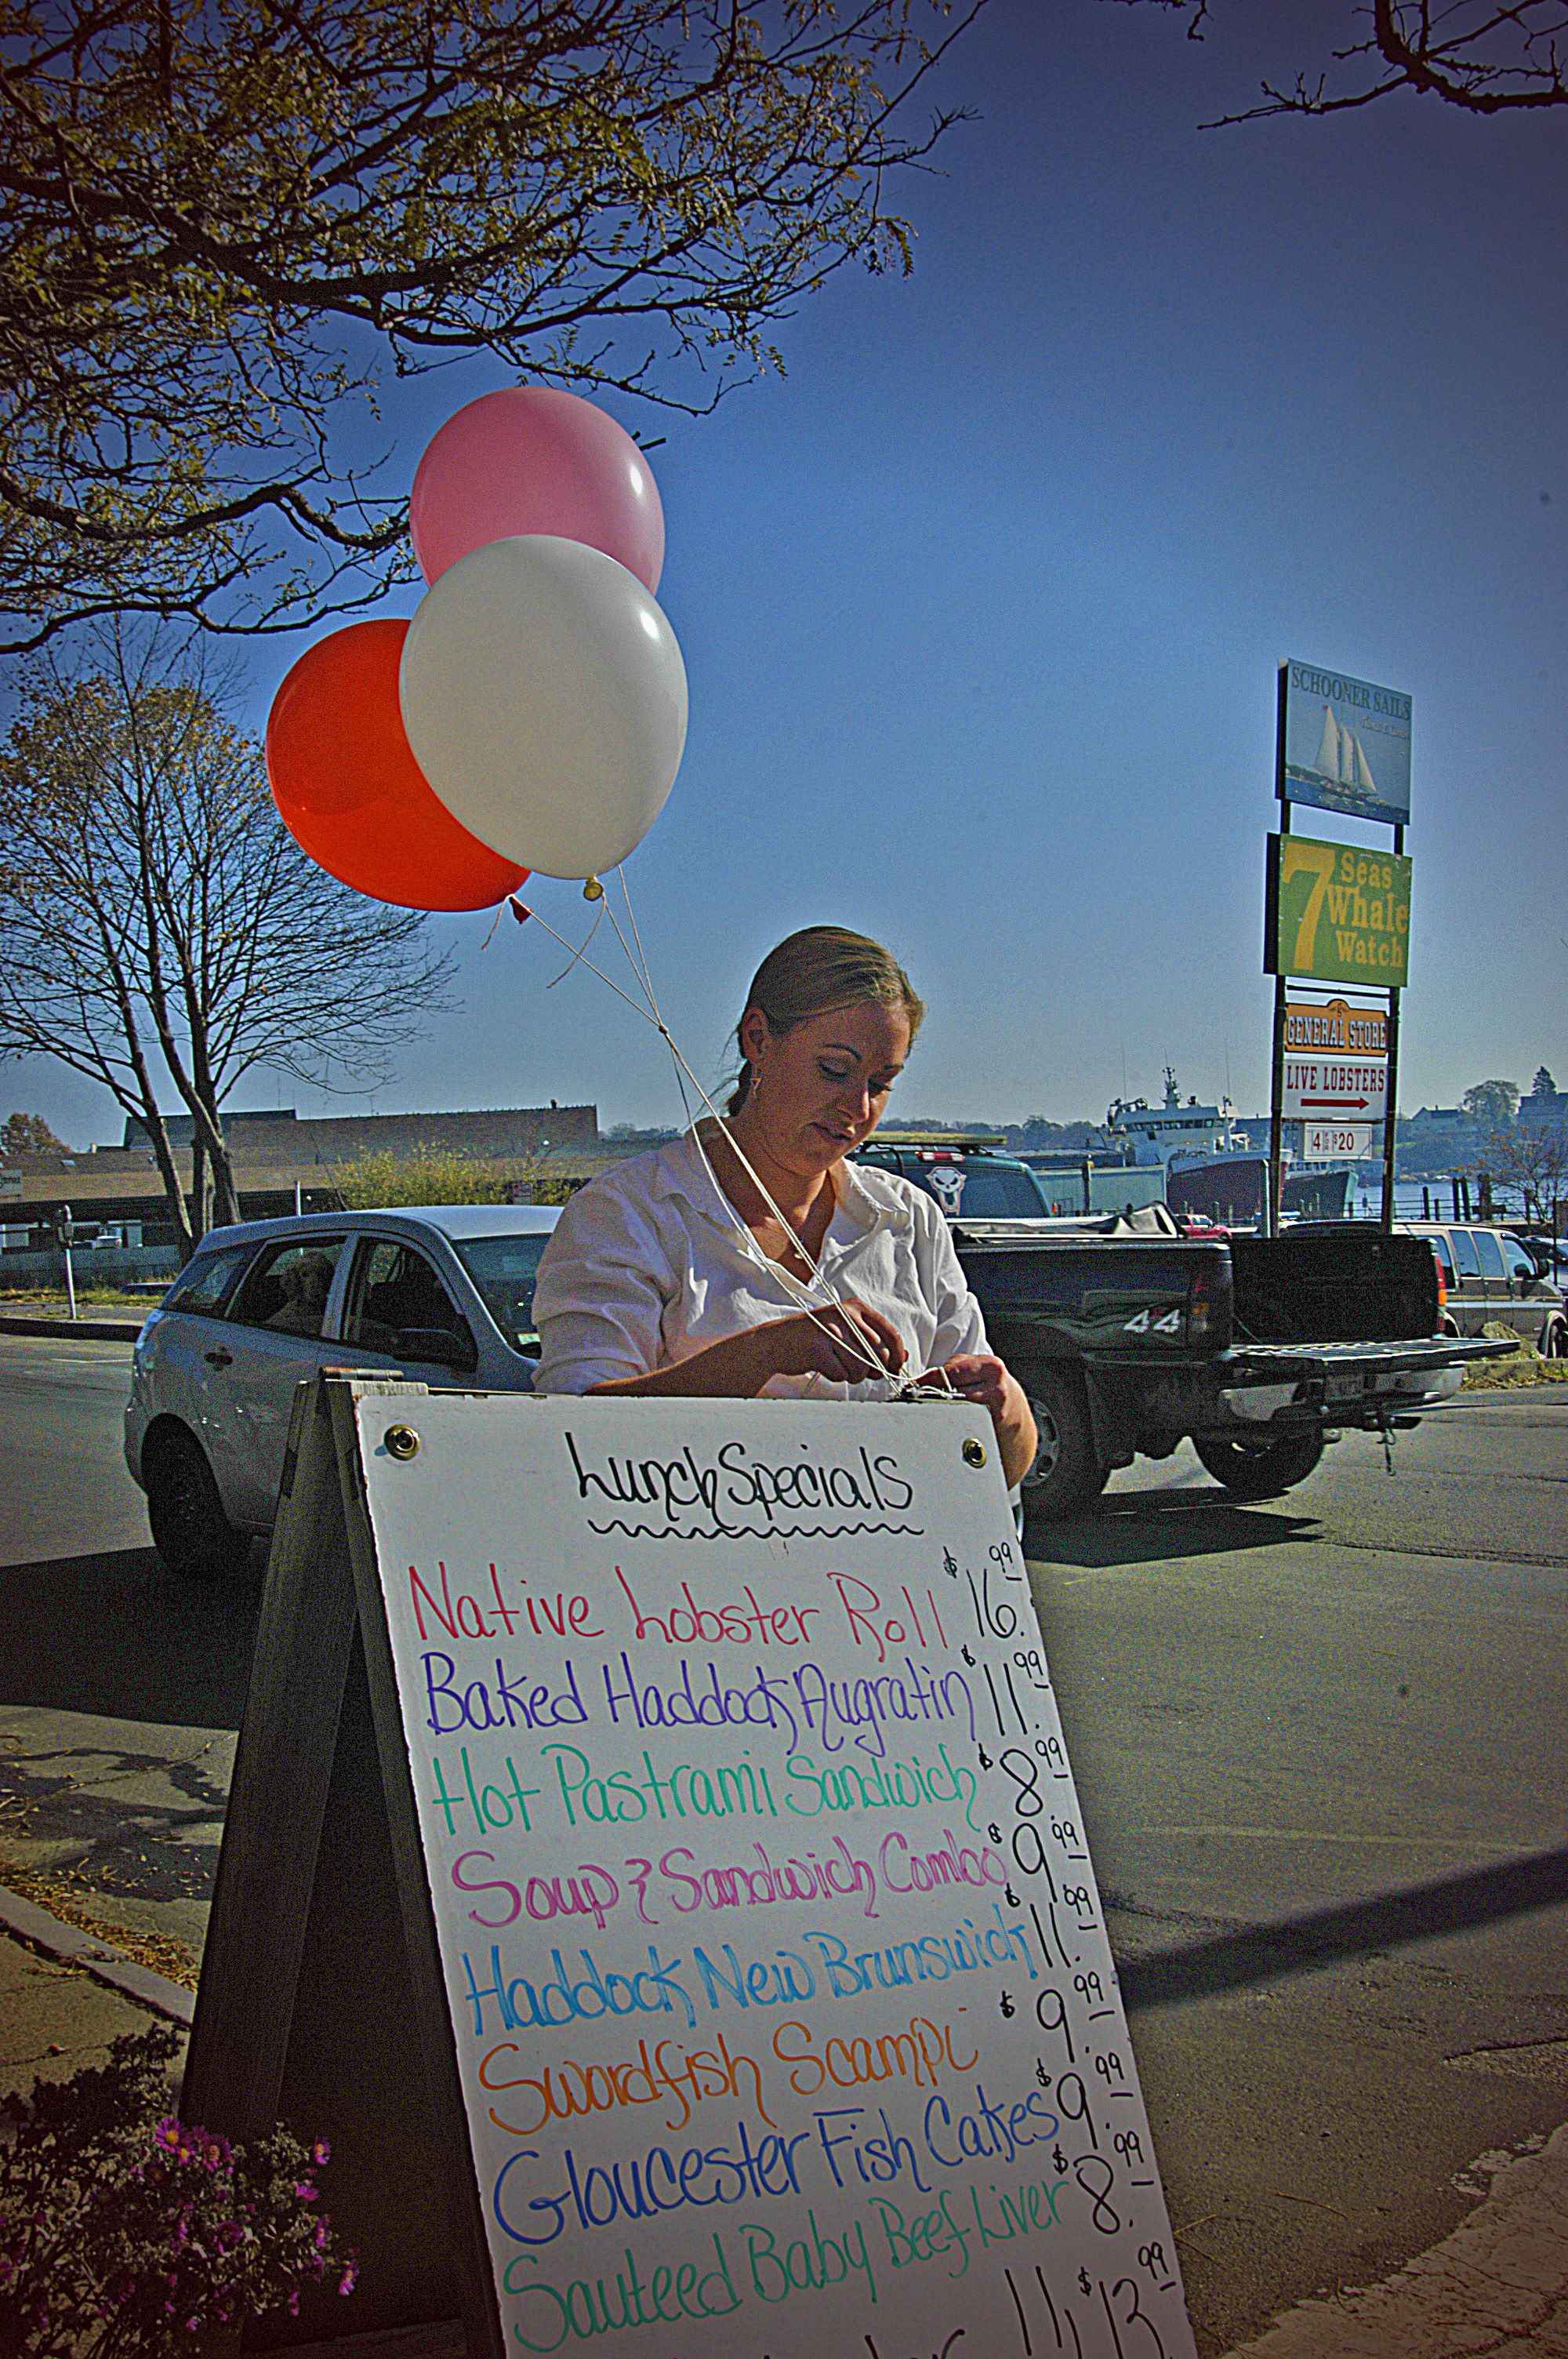 SCHOONER SAILS
7 Seas
Whale
Watch
GENERAL STORE
LIVE LOBSTERS
4 $20
44
Lunch Specials
Native Lobster Roll $16.99
Baked Haddock Augratin $11.99
Hot Pastrami Sandwich $8.99
Soup & Sandwich Combo $9.99
Haddock New Brunswick $11.99
Swordfish Scampi $9.99
Gloucester Fish Cakes $9.99
Sauteed Baby Beef Liver $8.99
$13.99